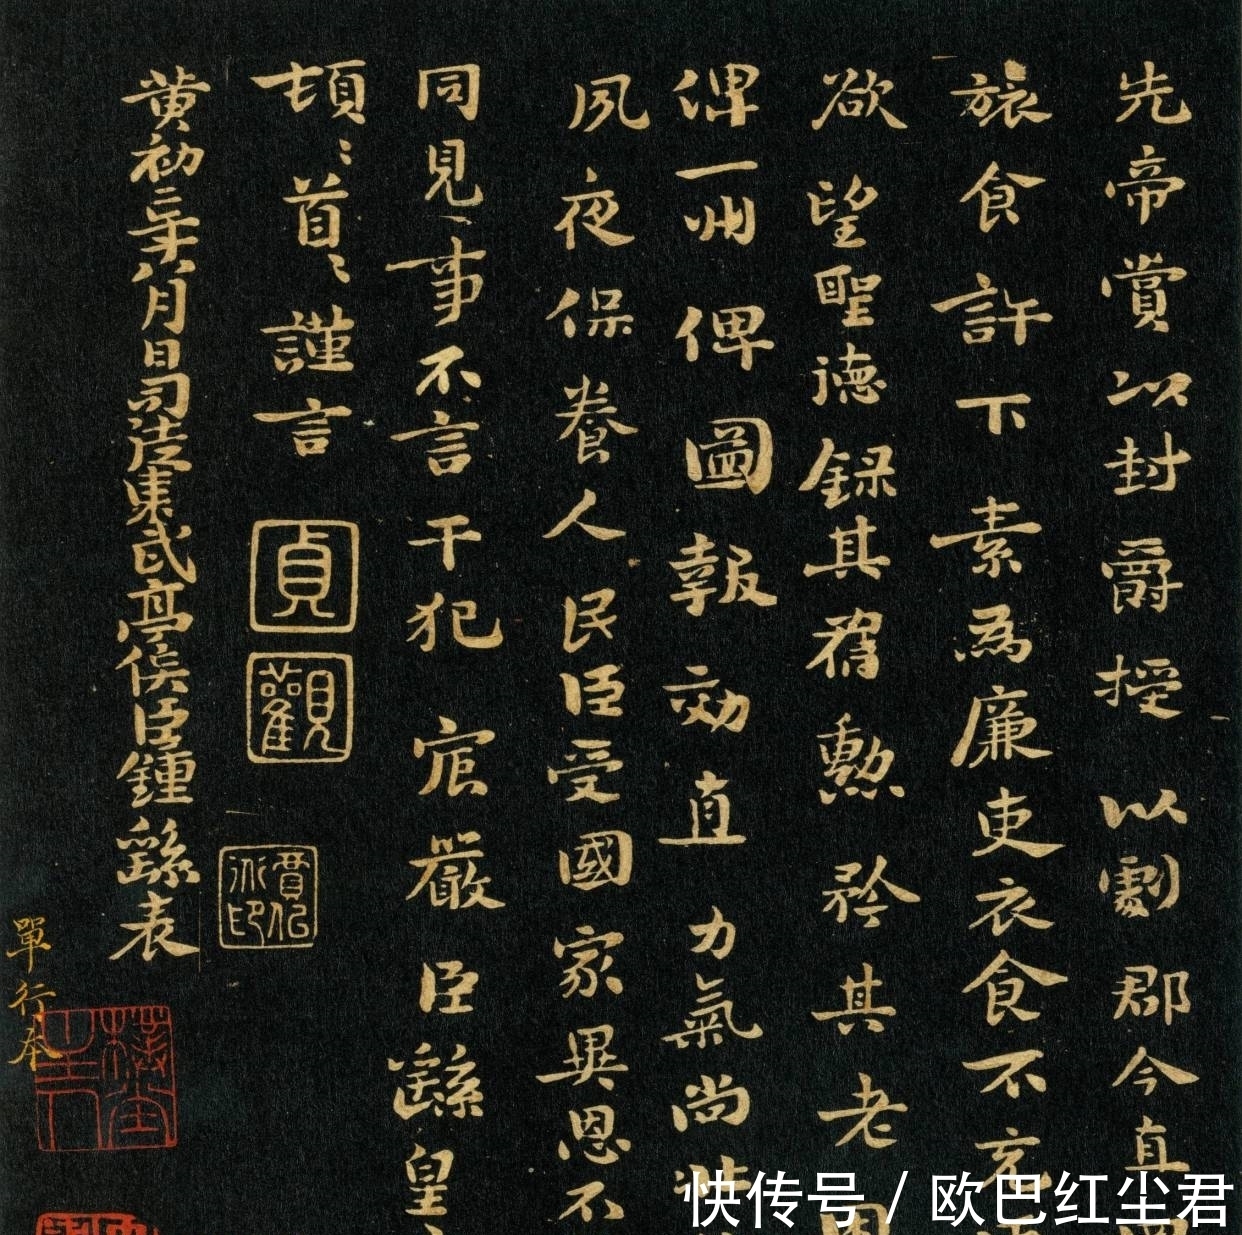 先帝賞以封爵授以劇郡今直
旅食許下素為廉吏衣食不充
欲望聖德録其舊勲矜其老
俾一州俾圖報効直力氣尚
夙夜保養人民臣受國家異恩不
同見事不言干犯宸嚴臣繇皇
頓〻首〻謹言
黄初二年八月日司徒東武亭侯臣鍾繇表
貞觀
單行本
快传号 / 欧巴红尘君